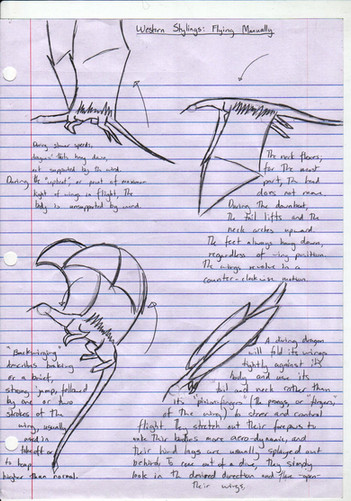 Western Stylings: Flying Manually
During slower speeds,
dragons' tails hang down,
not supported by the wind.
During the "upbeat", or point of maximum
height of wings in flight, the
body is unsupported by wind.
The neck flexes;
for the most
part, the head
does not move.
During the downbeat,
the tail lifts and the
neck arches upward.
The feet always hang down,
regardless of wing position.
The wings revolve in a
counter-clockwise motion.
"Backwinging"
describes backing
or a brief,
strong jump, followed
by one or two
strokes of the
wing, usually
used in
takeoff or
to leap
higher than normal.
A diving dragon
will fold its wings
tightly against its
body and use its
tail and neck rather than
its "pinions/fingers" (the prongs, or "fingers",
of the wing) to steer and control
flight. They stretch out their forepaws to
make their bodies more aero-dynamic, and
their hind legs are usually splayed out
behind. To come out of a dive, they simply
look in the desired direction and then open
their wings.